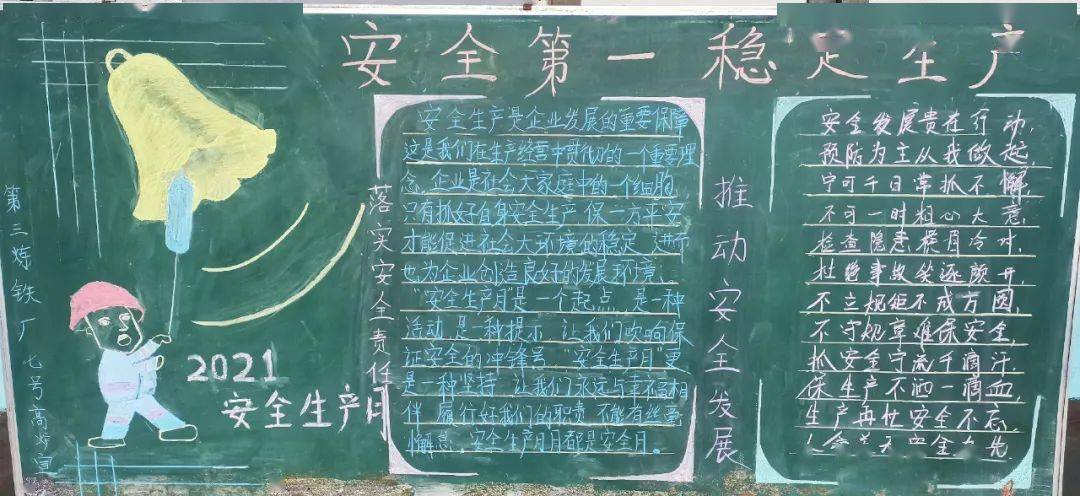 安全第一 稳定生产
第三炼铁厂七号高炉宣
2021
安全生产月
落实安全责任
安全生产是企业发展的重要保障
这是我们在生产经营中贯彻的一个重要理
念,企业是社会大家庭中的一个细胞
只有抓好自身安全生产 保一方平安
才能促进社会大环境的稳定 进而
也为企业创造良好的发展环境。
“安全生产月”是一个起点,是一种
活动 是一种提示 让我们吹响保
证安全的冲锋号 “安全生产月”更
是一种坚持 让我们永远与幸福相
伴 履行好我们的职责 不能有丝毫
懈怠,安全生产月月都是安全月。
推动安全发展
安全发展贵在行动,
预防为主从我做起,
宁可千日常抓不懈
不可一时粗心大意,
检查隐患横眉冷对,
杜绝事故笑逐颜开,
不立规矩不成方圆,
不守规章难保安全,
抓安全宁流千滴汗,
保生产不洒一滴血,
生产再忙安全不忘,
全 先